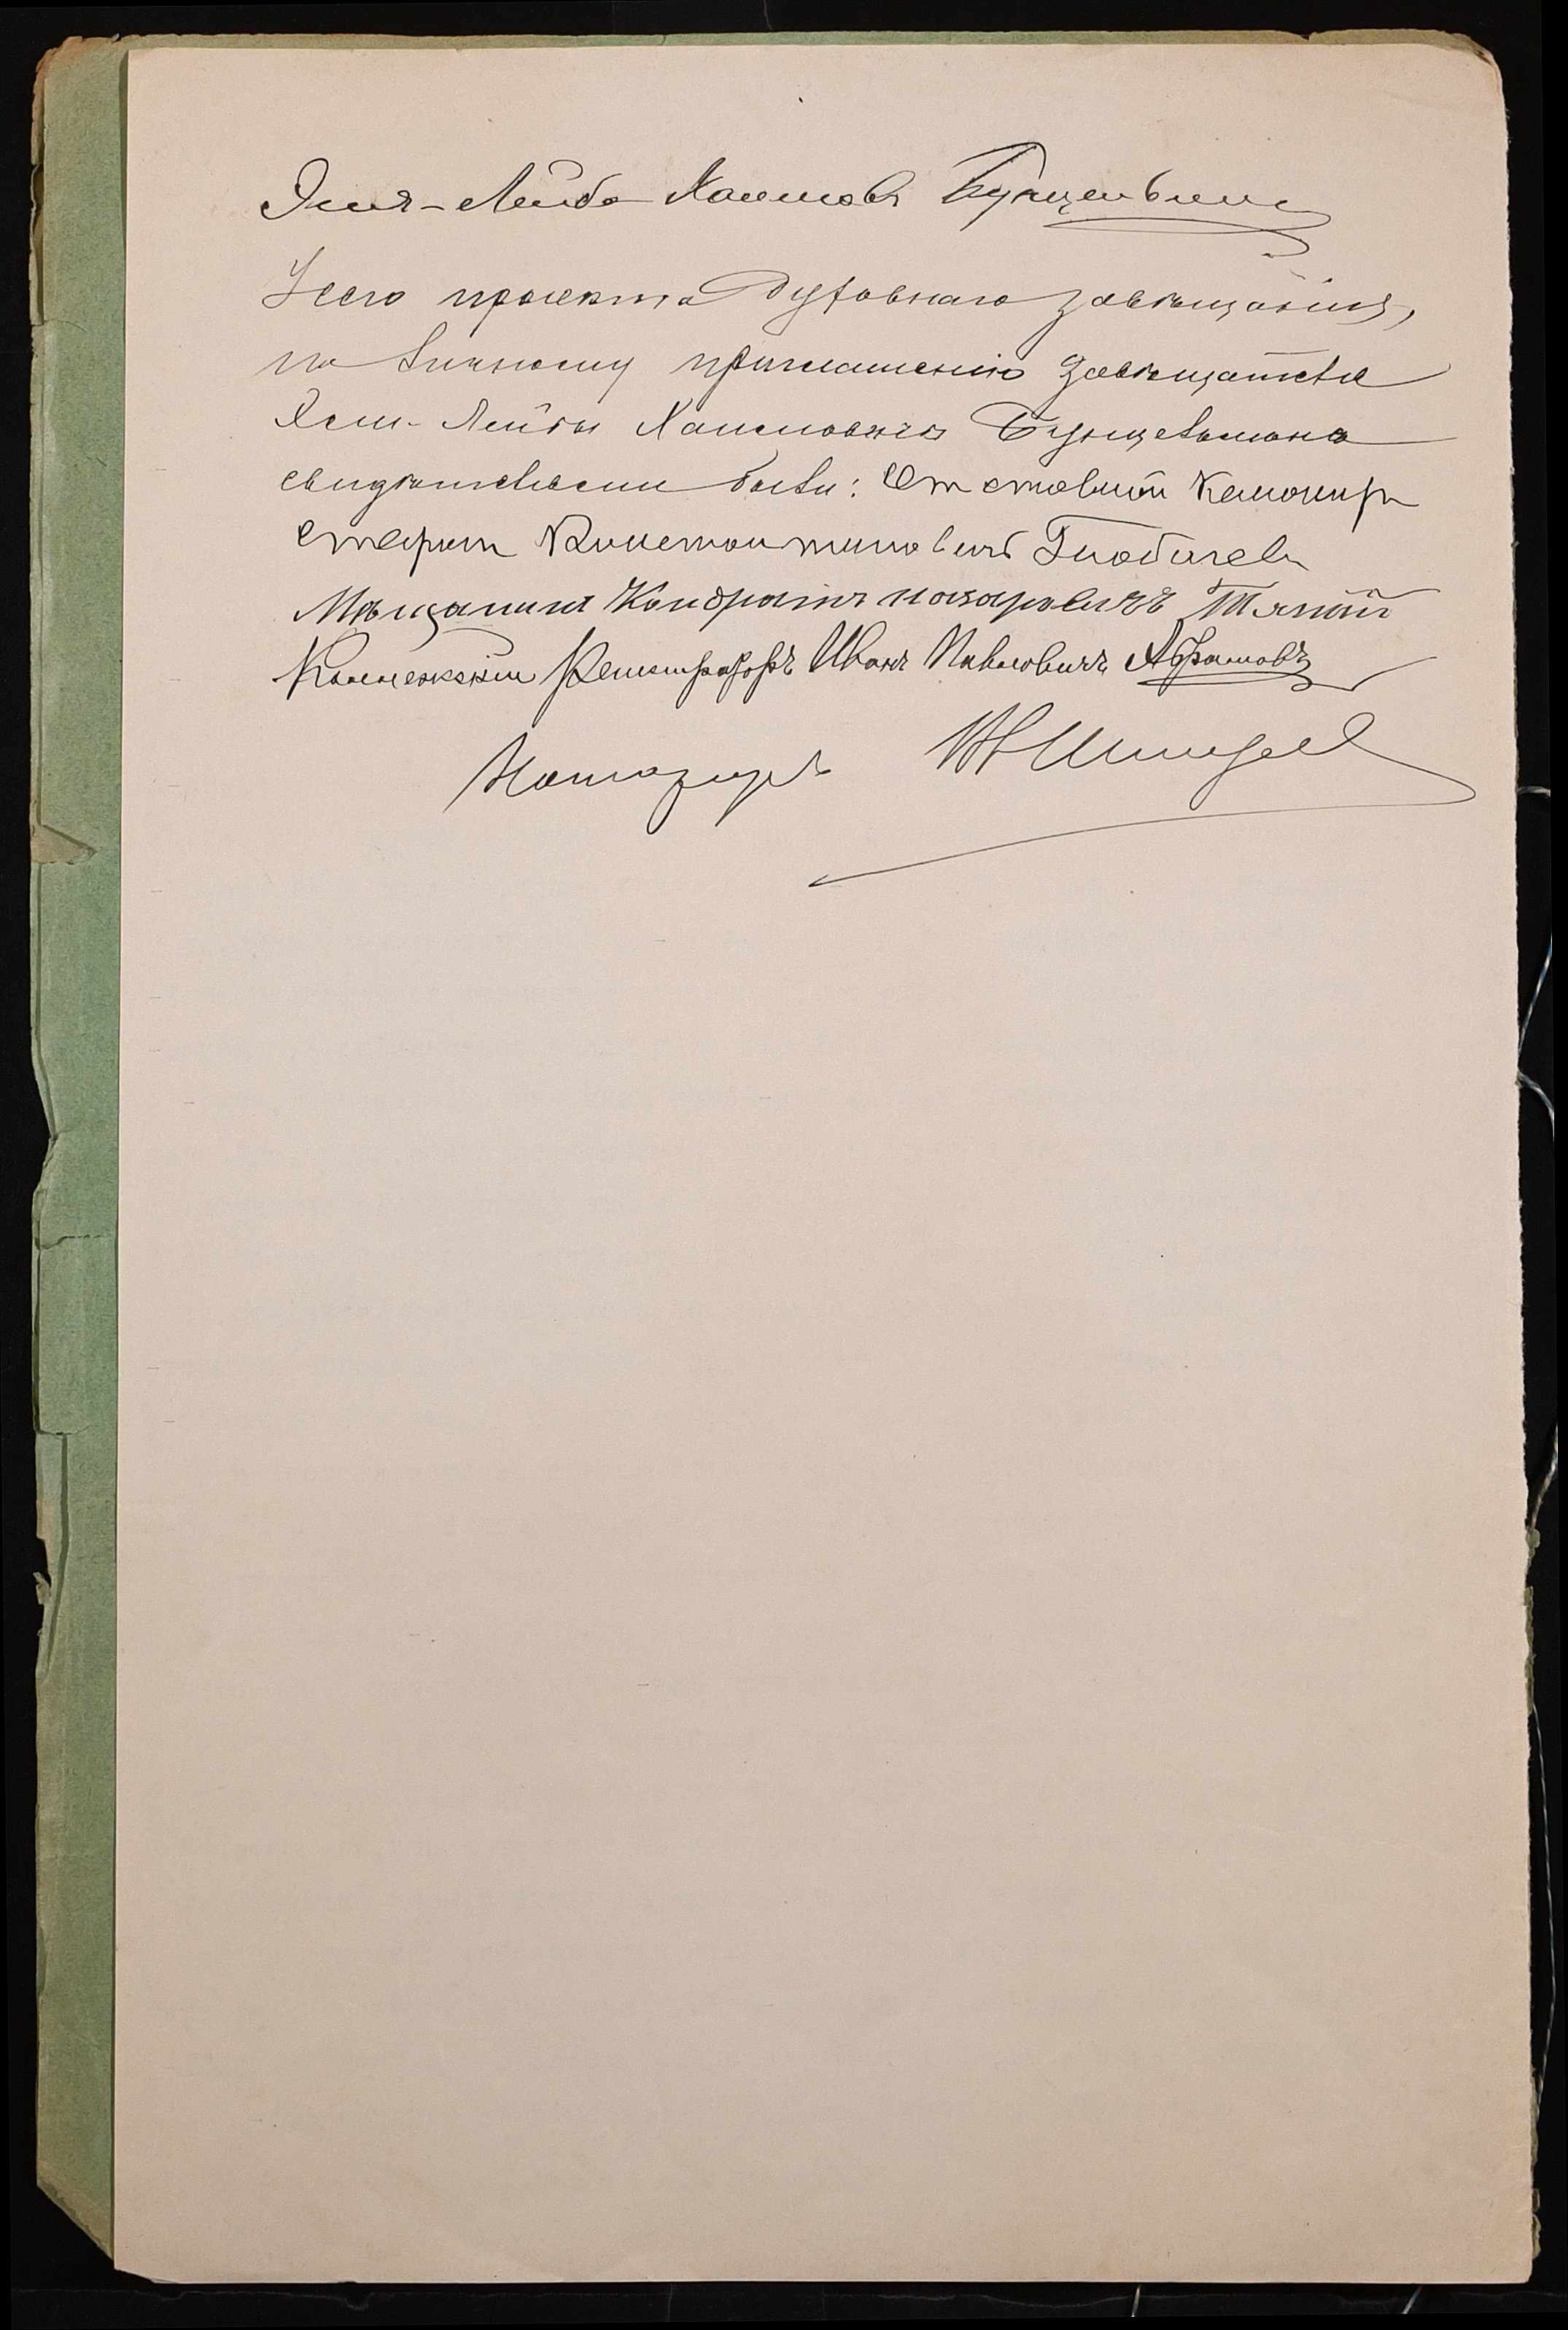 Эля-Лейба Хаимовъ Бунцельманъ
У сего проекта духовнаго завѣщанія,
по личному приглашенію завѣщателя
Эли-Лейбы Хаимовича Бунцельмана
свидѣтелями были: Отставной
Константиновичъ
Мѣщанинъ Кондратъ назаровичъ Тяпкій
Коллежскій Регистраторъ Иванъ Павловичъ
Нотаріусъ